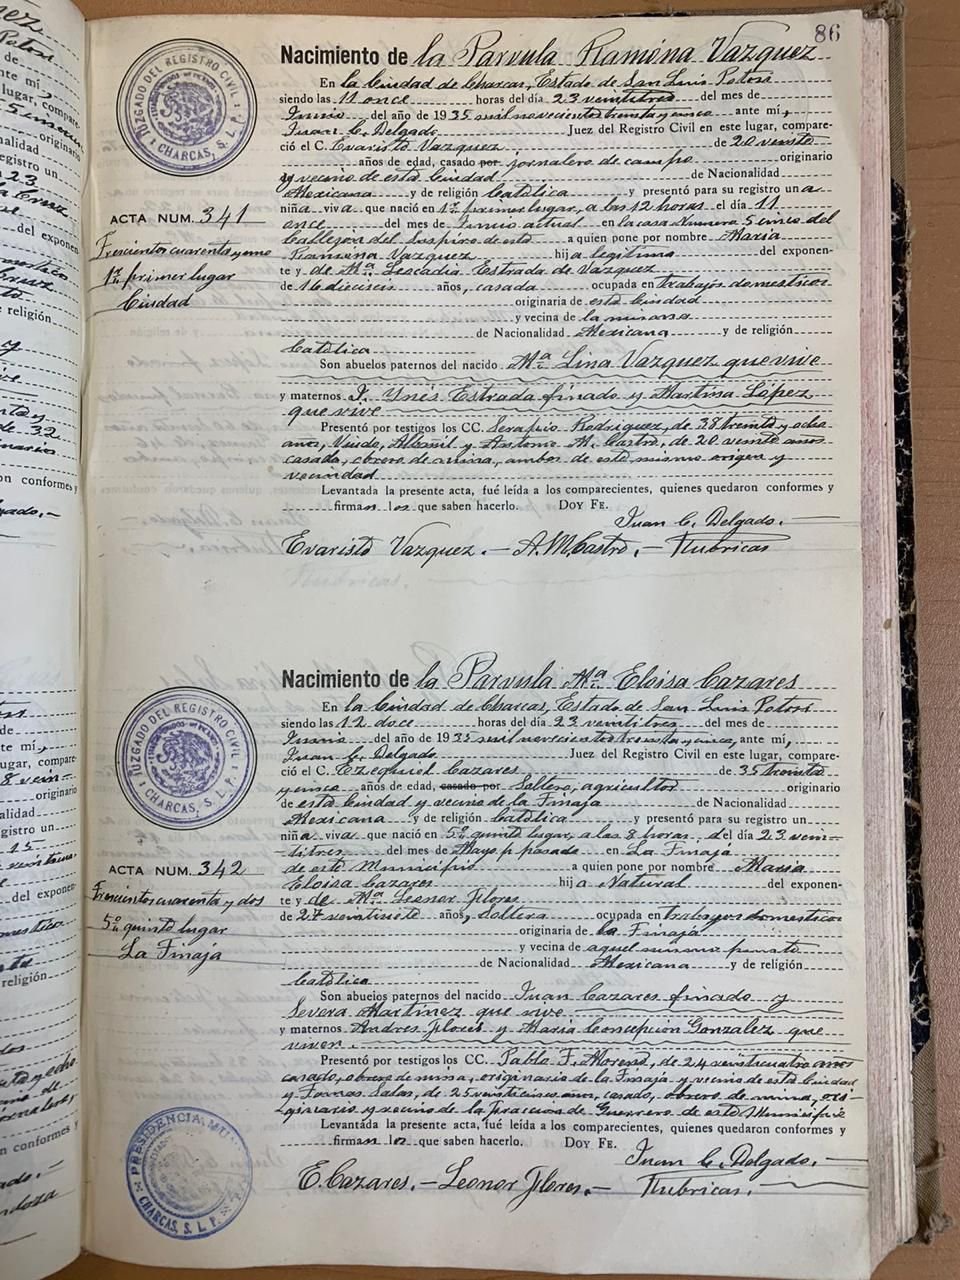 86
JUZGADO DEL REGISTRO CIVIL
CHARCAS, S. L. P.
Nacimiento de la Parvula Ramona Vazquez
En la Ciudad de Charcas, Estado de San Luis Potosi
siendo las 11 once horas del día 23 veintitres del mes de
Junio del año de 1935 mil novecientos treinta y cinco ante mí,
Juan C. Delgado Juez del Registro Civil en este lugar, compare-
ció el C. Evaristo Vazquez de 20 veinte
años de edad, casado por jornalero de campo originario
y vecino de esta Ciudad de Nacionalidad
Mexicana y de religión Católica y presentó para su registro una
niña viva que nació en 1er primer lugar, a las 12 horas el día 11
ACTA NUM. 341
once del mes de Junio actual en la casa Numero 5 cinco del
Callejon del Suspiro de esta a quien pone por nombre Maria
Trescientos cuarenta y uno
Ramona Vazquez hija legitima del exponen-
1er primer lugar
te y de Ma Leocadia Estrada de Vazquez
de 16 dieciseis años, casada ocupada en trabajos domesticos
Ciudad
originaria de esta Ciudad
y vecina de la misma
de Nacionalidad Mexicana y de religión
Católica
Son abuelos paternos del nacido Ma Lina Vazquez que vive
y maternos J. Ynés Estrada finado y Martina López
que vive
Presentó por testigos los CC. Serapio Rodriguez, de 38 treinta y ocho
años, Viudo, Albañil y Antonio M. Castro, de 20 veinte años
casado, obrero de mina, ambos de este mismo origen y
vecindad
Levantada la presente acta, fué leída a los comparecientes, quienes quedaron conformes y
firman los que saben hacerlo. DOY FE.
Juan C. Delgado.
Evaristo Vazquez. - A. M. Castro. - Rubricas
JUZGADO DEL REGISTRO CIVIL
CHARCAS, S. L. P.
Nacimiento de la Parvula Ma Eloisa Cazares
En la Ciudad de Charcas, Estado de San Luis Potosi
siendo las 12 doce horas del día 23 veintitres del mes de
Junio del año de 1935 mil novecientos treinta y cinco, ante mí,
Juan C. Delgado Juez del Registro Civil en este lugar, compare-
ció el C. Ezequiel Cazares de 35 treinta
y cinco años de edad, casado por Soltero, agricultor originario
de esta Ciudad y vecino de la Tinaja de Nacionalidad
Mexicana y de religión Católica y presentó para su registro un
niña viva que nació en 5o quinto lugar, a las 8 horas del día 23 vein-
titres del mes de Mayo p. pasado en La Tinaja
ACTA NUM. 342
de este Municipio a quien pone por nombre Maria
Eloisa Cazares hija Natural del exponen-
Trescientos cuarenta y dos
te y de Ma Leonor Flores
de 27 veintisiete años, Soltera ocupada en trabajos domesticos
5o quinto lugar
originaria de la Tinaja
La Tinaja
y vecina de aquel mismo punto
de Nacionalidad Mexicana y de religión
Católica
Son abuelos paternos del nacido Juan Cazares finado y
Severa Martínez que vive
y maternos Andres Flores y Maria Concepción Gonzalez que
viven.
Presentó por testigos los CC. Pablo F. Moreno, de 24 veinticuatro años
casado, obrero de mina, originario de la Tinaja y vecino de esta Ciudad
y Tomas Salas, de 25 veinticinco años, casado, obrero de mina, ori-
ginario y vecino de la fraccion de Guerrero de este Municipio
Levantada la presente acta, fué leída a los comparecientes, quienes quedaron conformes y
firman los que saben hacerlo. DOY FE.
Juan C. Delgado.
E. Cazares. - Leonor Flores. - Rubricas.
PRESIDENCIA MU
CHARCAS, S. L. P.